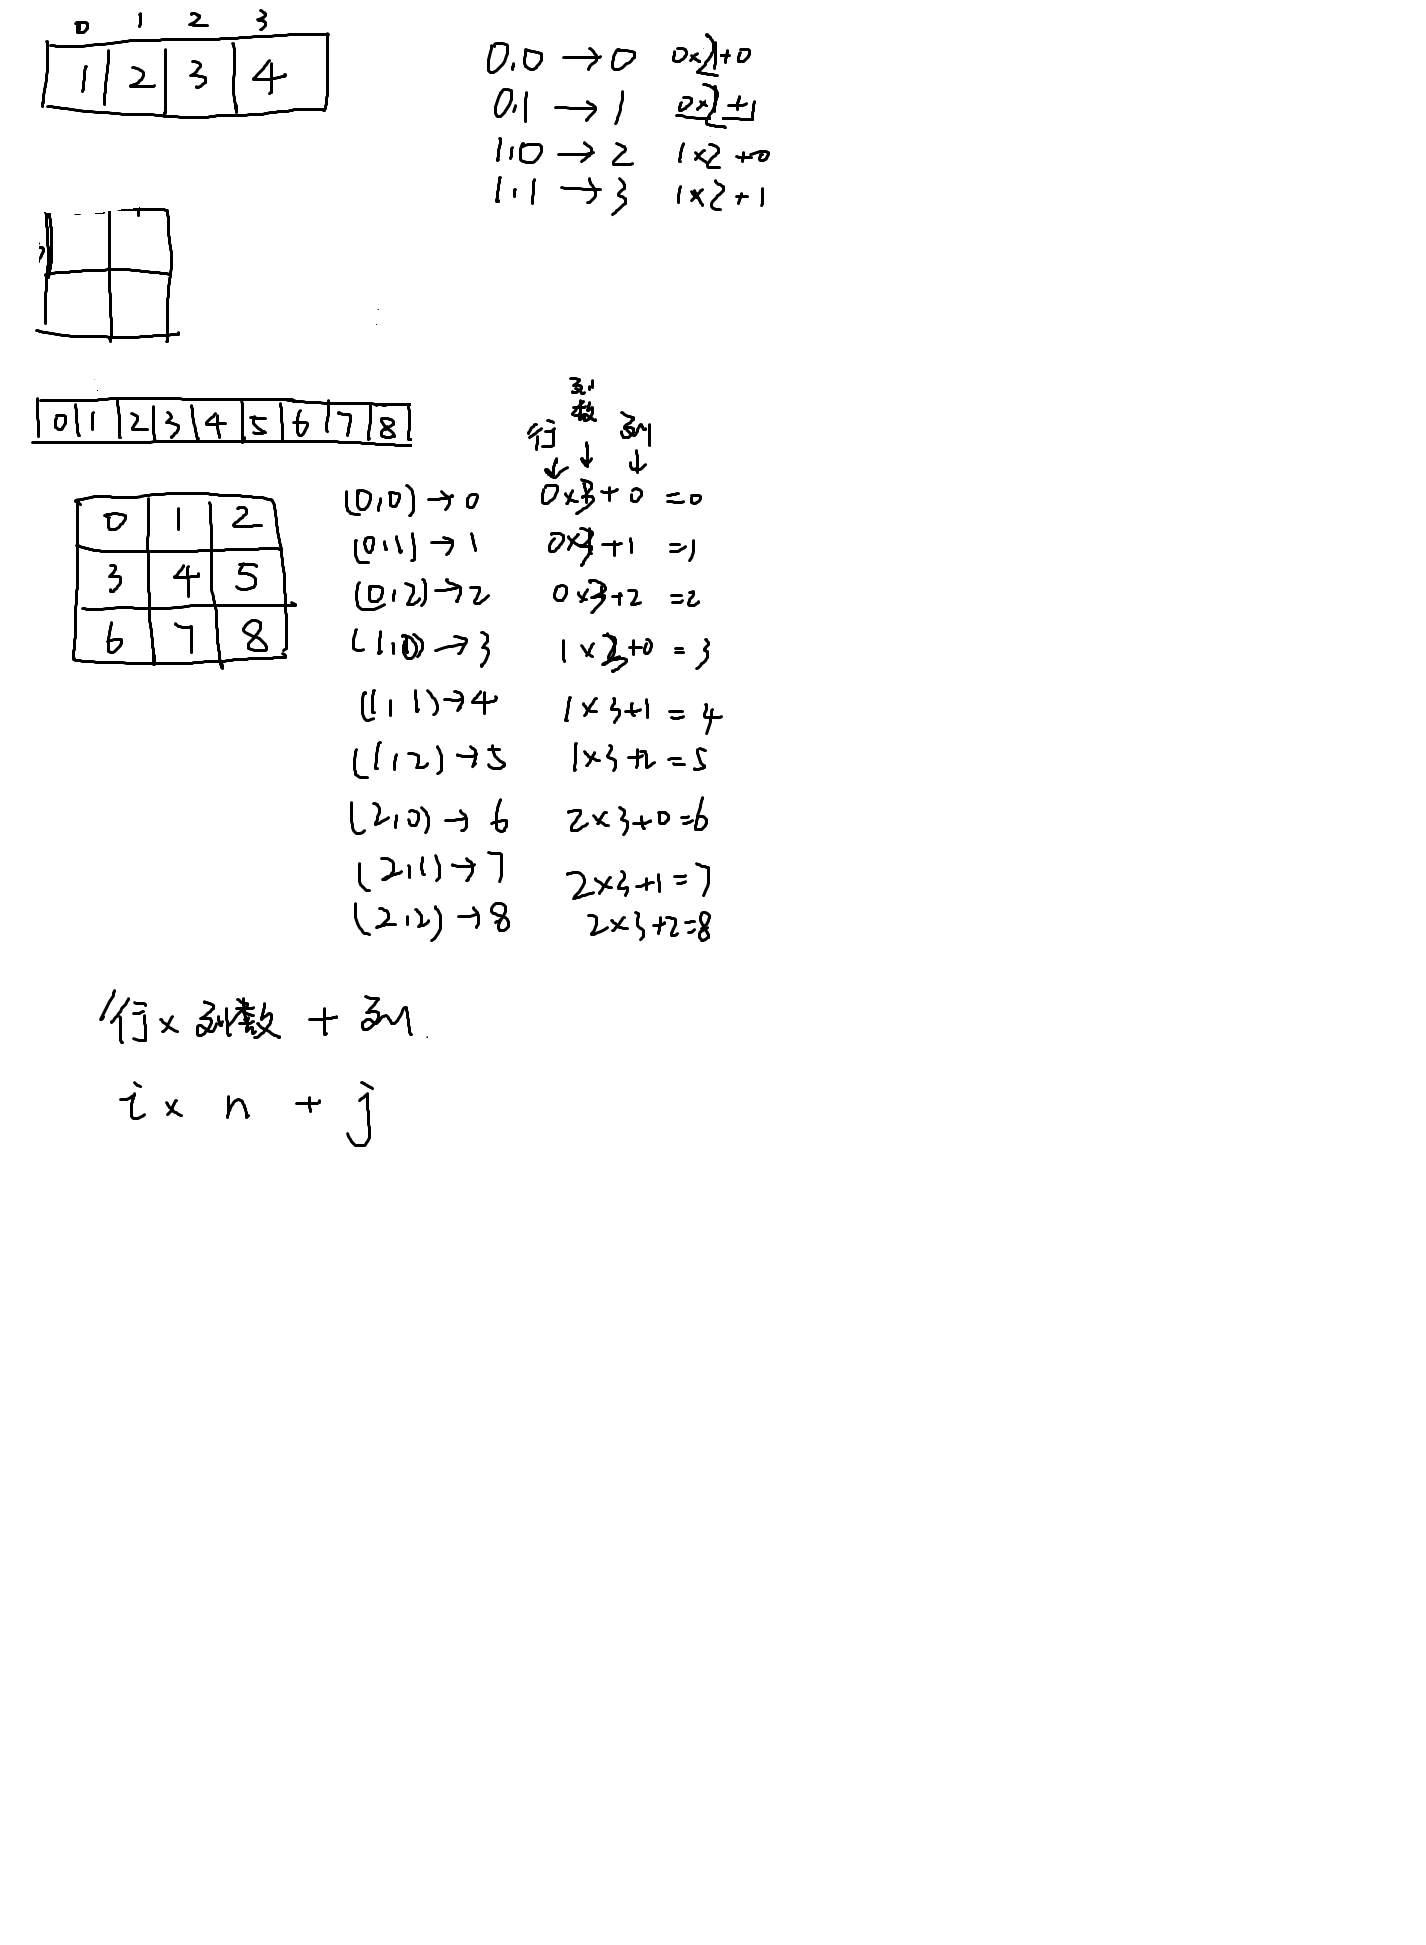 0 1 2 3
1 2 3 4
0,0 → 0 0×2+0
0,1 → 1 0×2+1
1,0 → 2 1×2+0
1,1 → 3 1×2+1
0 1 2 3 4 5 6 7 8
行 列数 列
0 1 2
3 4 5
6 7 8
(0,0) → 0 0×3+0 =0
(0,1) → 1 0×3+1 =1
(0,2) → 2 0×3+2 =2
(1,0) → 3 1×3+0 = 3
(1,1) → 4 1×3+1 = 4
(1,2) → 5 1×3+2 = 5
(2,0) → 6 2×3+0=6
(2,1) → 7 2×3+1=7
(2,2) → 8 2×3+2=8
行×列数 + 列
i × n + j